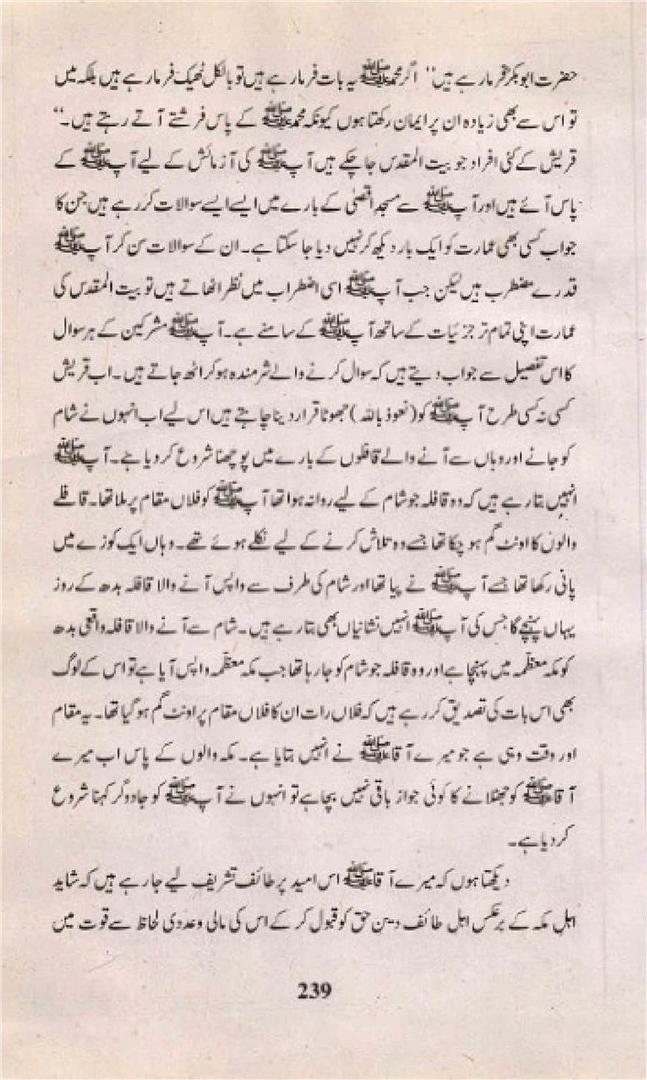 حضرت ابوبکرؓ فرما رہے ہیں "اگر محمد ﷺ یہ بات فرما رہے ہیں تو بالکل ٹھیک فرما رہے ہیں بلکہ میں
تو اس سے بھی زیادہ ان پر ایمان رکھتا ہوں کیونکہ محمد ﷺ کے پاس فرشتے آتے رہتے ہیں۔"
قریش کے کئی افراد جو بیت المقدس جا چکے ہیں آپ ﷺ کی آزمائش کے لیے آپ ﷺ کے
پاس آئے ہیں اور آپ ﷺ سے مسجد اقصٰی کے بارے میں ایسے ایسے سوالات کر رہے ہیں جن کا
جواب کسی بھی عمارت کو ایک بار دیکھ کر نہیں دیا جا سکتا ہے۔ ان کے سوالات سن کر آپ ﷺ
قدرے مضطرب ہیں لیکن جب آپ ﷺ اسی اضطراب میں نظر اٹھاتے ہیں تو بیت المقدس کی
عمارت اپنی تمام تر جزئیات کے ساتھ آپ ﷺ کے سامنے ہے۔ آپ ﷺ مشرکین کے ہر سوال
کا اس تفصیل سے جواب دیتے ہیں کہ سوال کرنے والے شرمندہ ہو کر اٹھ جاتے ہیں۔ اب قریش
کسی نہ کسی طرح آپ ﷺ کو (نعوذ باللہ) جھوٹا قرار دینا چاہتے ہیں اس لیے اب انہوں نے شام
کو جانے اور وہاں سے آنے والے قافلوں کے بارے میں پوچھنا شروع کر دیا ہے۔ آپ ﷺ
انہیں بتا رہے ہیں کہ وہ قافلہ جو شام کے لیے روانہ ہوا تھا آپ ﷺ کو فلاں مقام پر ملا تھا۔ قافلے
والوں کا اونٹ گم ہو چکا تھا جسے وہ تلاش کرنے کے لیے نکلے ہوئے تھے۔ وہاں ایک کوزے میں
پانی رکھا تھا جسے آپ ﷺ نے پیا تھا اور شام کی طرف سے واپس آنے والا قافلہ بدھ کے روز
یہاں پہنچے گا جس کی آپ ﷺ انہیں نشانیاں بھی بتا رہے ہیں۔ شام سے آنے والا قافلہ واقعی بدھ
کو مکہ معظّمہ میں پہنچا ہے اور وہ قافلہ جو شام کو جا رہا تھا جب مکہ معظّمہ واپس آیا ہے تو اس کے لوگ
بھی اس بات کی تصدیق کر رہے ہیں کہ فلاں رات ان کا فلاں مقام پر اونٹ گم ہو گیا تھا۔ یہ مقام
اور وقت وہی ہے جو میرے آقا ﷺ نے انہیں بتایا ہے۔ مکہ والوں کے پاس اب میرے
آقا ﷺ کو جھٹلانے کا کوئی جواز باقی نہیں بچا ہے تو انہوں نے آپ ﷺ کو جادوگر کہنا شروع
کر دیا ہے۔
دیکھتا ہوں کہ میرے آقا ﷺ اس امید پر طائف تشریف لیے جا رہے ہیں کہ شاید
اہلِ مکہ کے برعکس اہل طائف دین حق کو قبول کر کے اس کی مالی و عددی لحاظ سے قوت میں
239